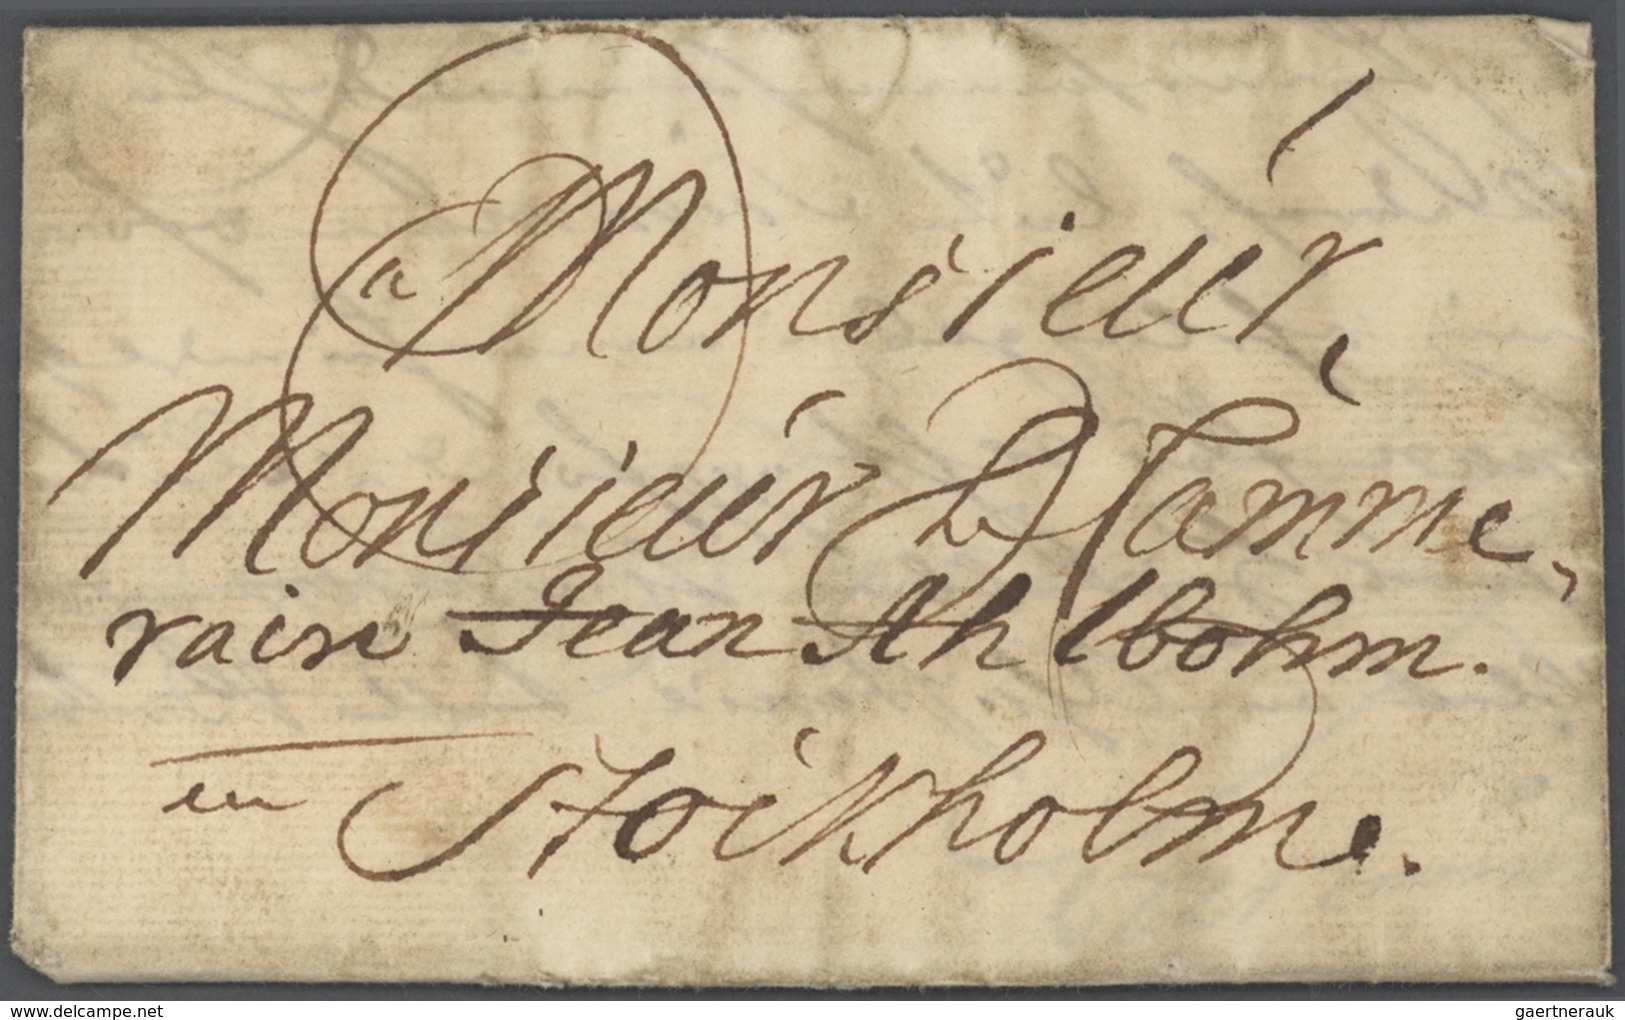 a Monsieur,
Monsieur Le Camme,
raire Jean Ahlbohm.
en Stockholme.
delcampe.net
gaertnerauk